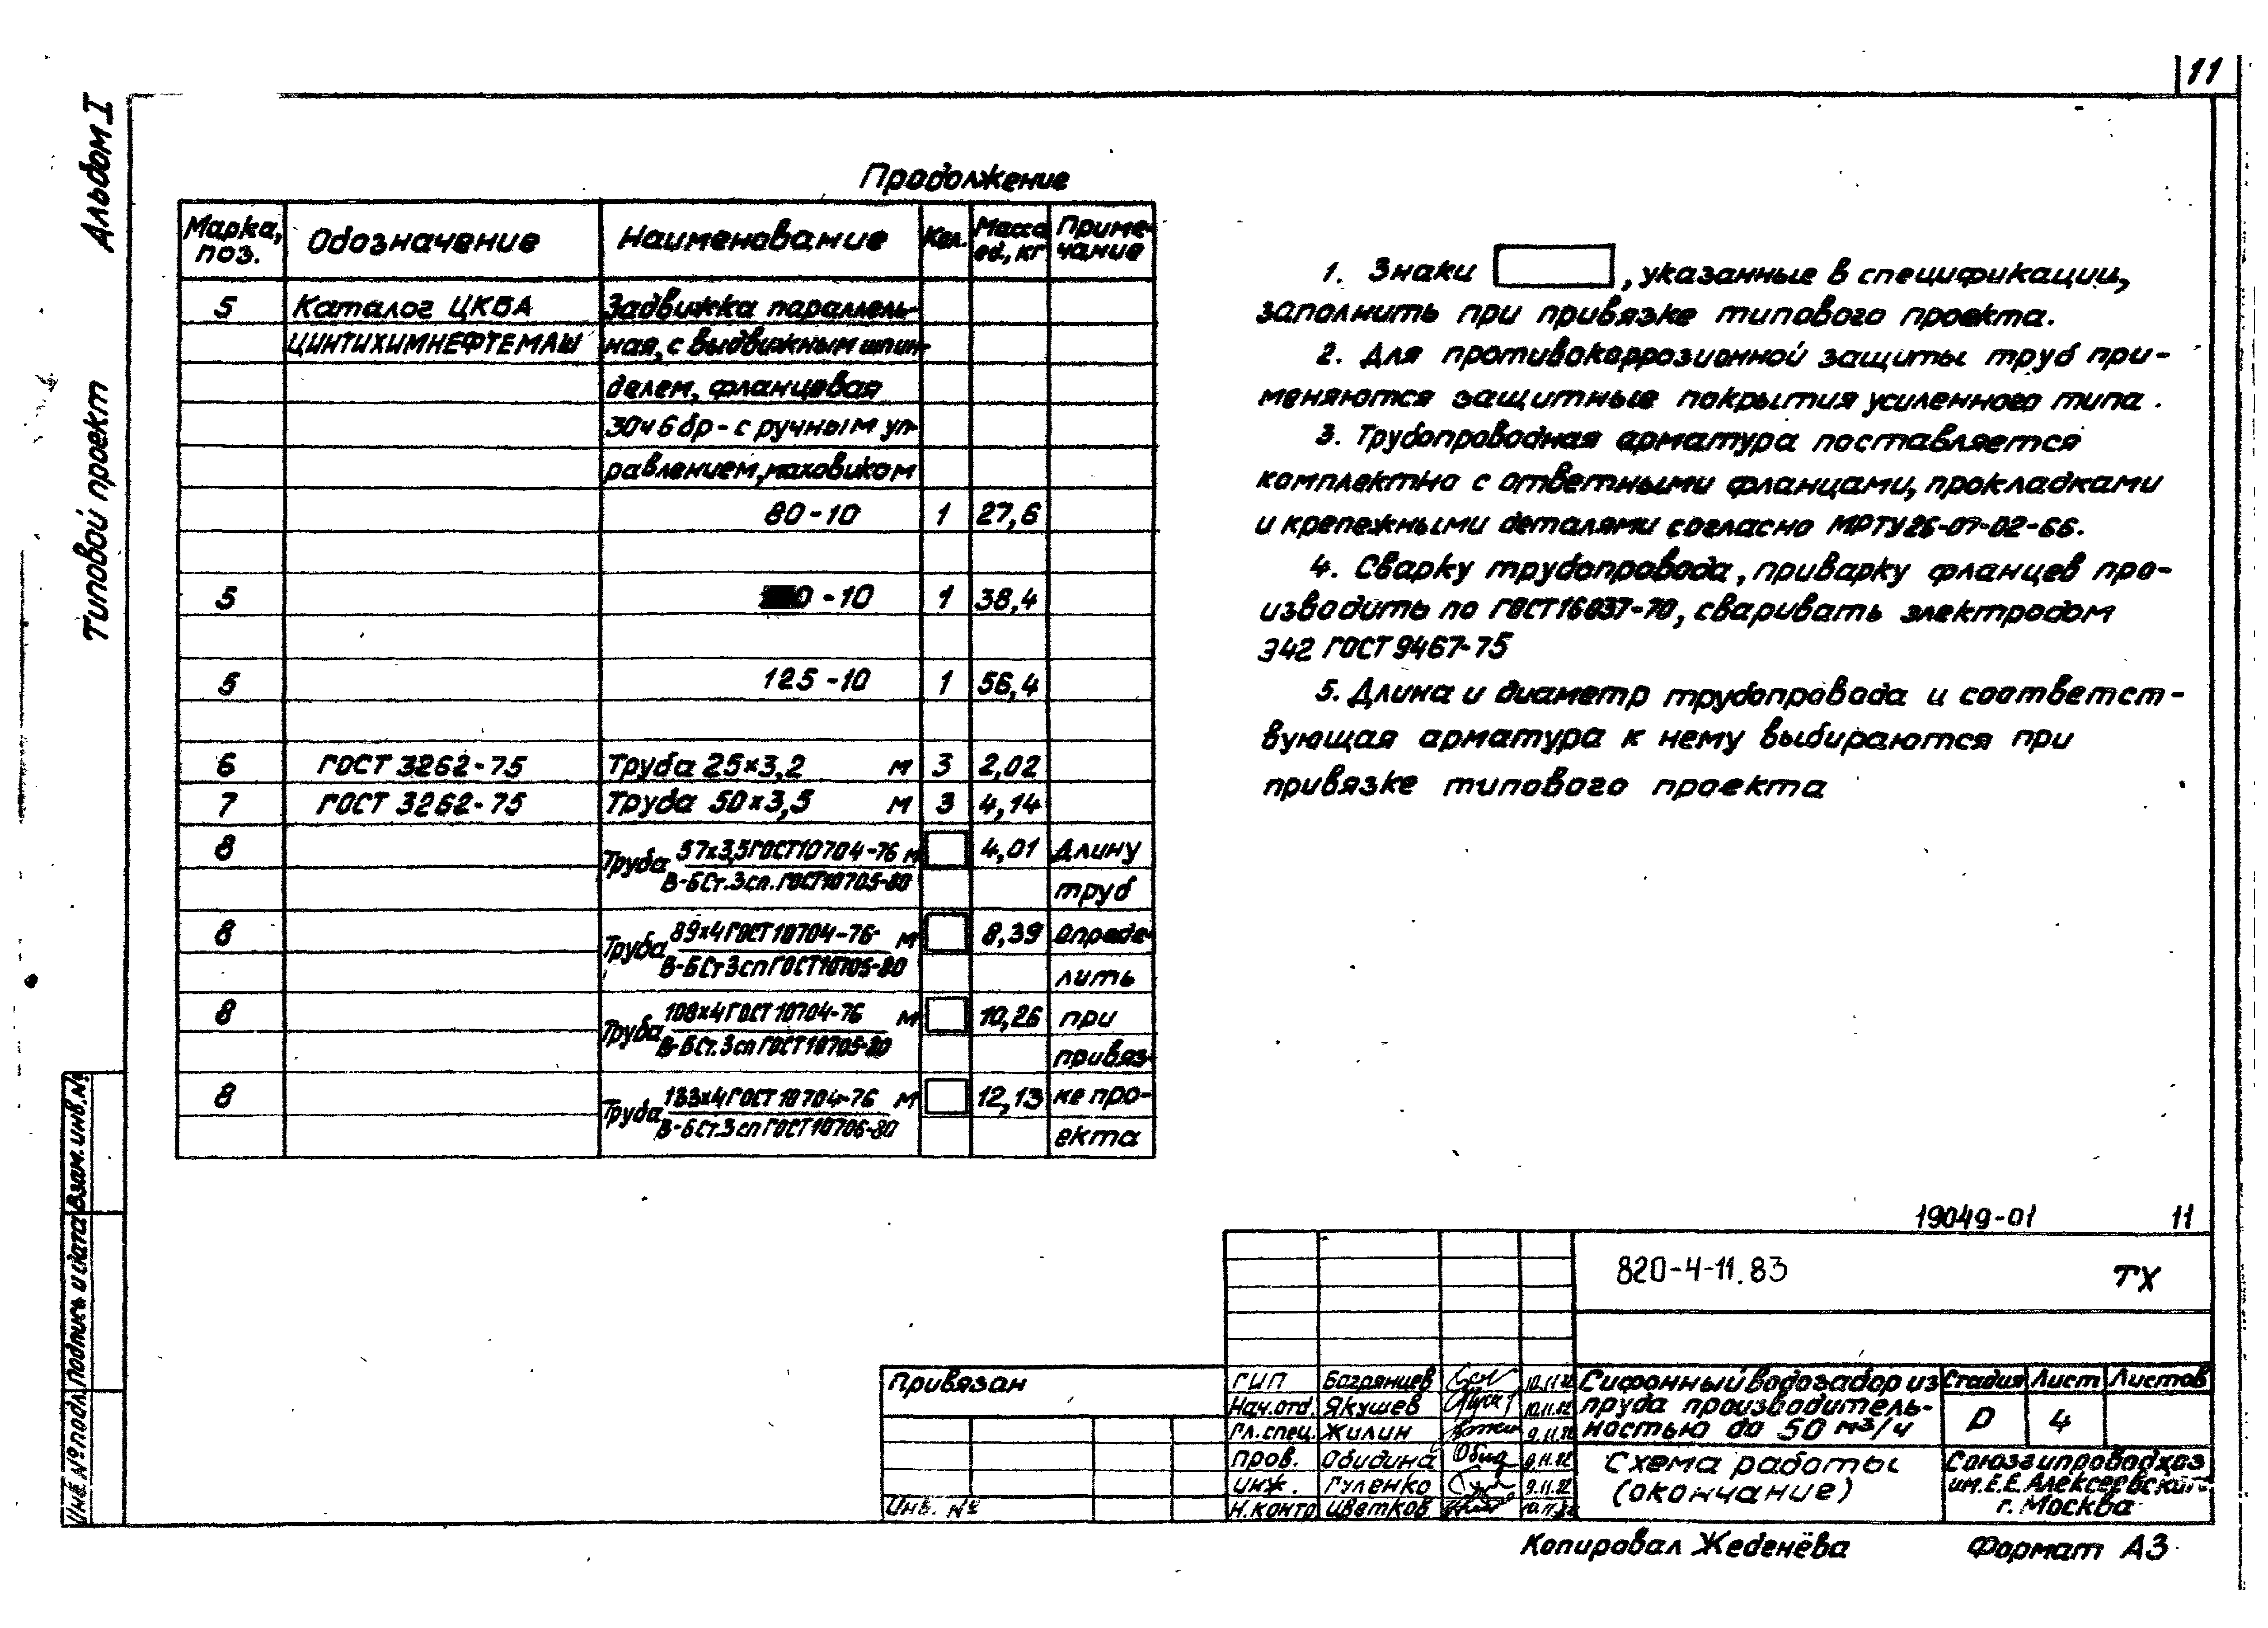 11
Альбом I
Типовой проект
Продолжение
Марка, поз. Обозначение Наименование Кол. Масса ед., кг Примечание
5 Каталог ЦКБА Задвижка параллель-
ЦИНТИХИМНЕФТЕМАШ ная, с выдвижным шпин-
делем, фланцевая
30ч6бр - с ручным уп-
равлением, маховиком
80-10 1 27,6
5 0-10 1 38,4
5 125-10 1 56,4
6 ГОСТ 3262-75 Труба 25×3,2 м 3 2,02
7 ГОСТ 3262-75 Труба 50×3,5 м 3 4,14
8 Труба 57×3,5 ГОСТ 10704-76 м 4,01 Длину
В-БСт.3сп. ГОСТ 10705-80 труб
8 Труба 89×4 ГОСТ 10704-76 м 8,39 опреде-
В-БСт3сп ГОСТ 10705-80 лить
8 Труба 108×4 ГОСТ 10704-76 м 10,26 при
В-БСт.3сп ГОСТ 10705-80 привяз-
8 Труба 133×4 ГОСТ 10704-76 м 12,13 ке про-
В-БСт.3сп ГОСТ 10706-80 екта
1. Знаки , указанные в спецификации,
заполнить при привязке типового проекта.
2. Для противокоррозионной защиты труб при-
меняются защитные покрытия усиленного типа.
3. Трубопроводная арматура поставляется
комплектно с ответными фланцами, прокладками
и крепежными деталями согласно МРТУ 26-07-02-66.
4. Сварку трубопровода, приварку фланцев про-
изводить по ГОСТ 16037-70, сваривать электродом
Э42 ГОСТ 9467-75
5. Длина и диаметр трубопровода и соответст-
вующая арматура к нему выбираются при
привязке типового проекта
Взам. инв. №
Подпись и дата
Инв. № подл.
19049-01 11
820-4-11.83 ТХ
Привязан
Инв. №
ГИП Багрянцев
Нач. отд. Якушев
Гл. спец. Жилин 9.11.82
Пров. Обидина 9.11.82
Инж. Гуленко 9.11.82
Н. контр Цветков
Сифонный водозабор из
пруда производитель-
ностью до 50 м³/ч
Стадия Лист Листов
Р 4
Схема работы
(окончание)
Союзгипроводхоз
им. Е.Е. Алексеевского
г. Москва
Копировал Жеденёва Формат А3